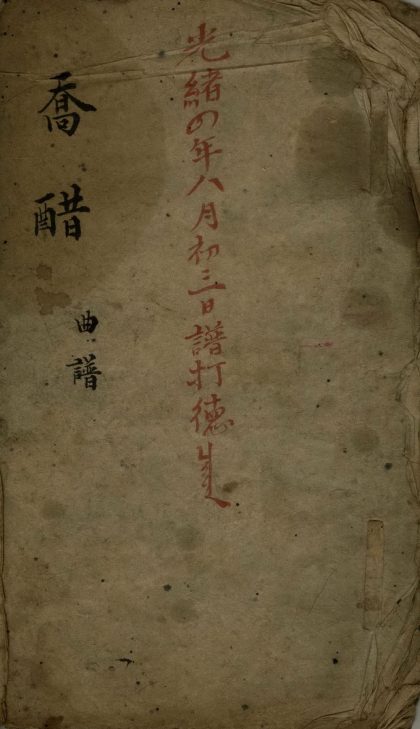 光緒四年八月初三日譜打德
喬醋
曲譜